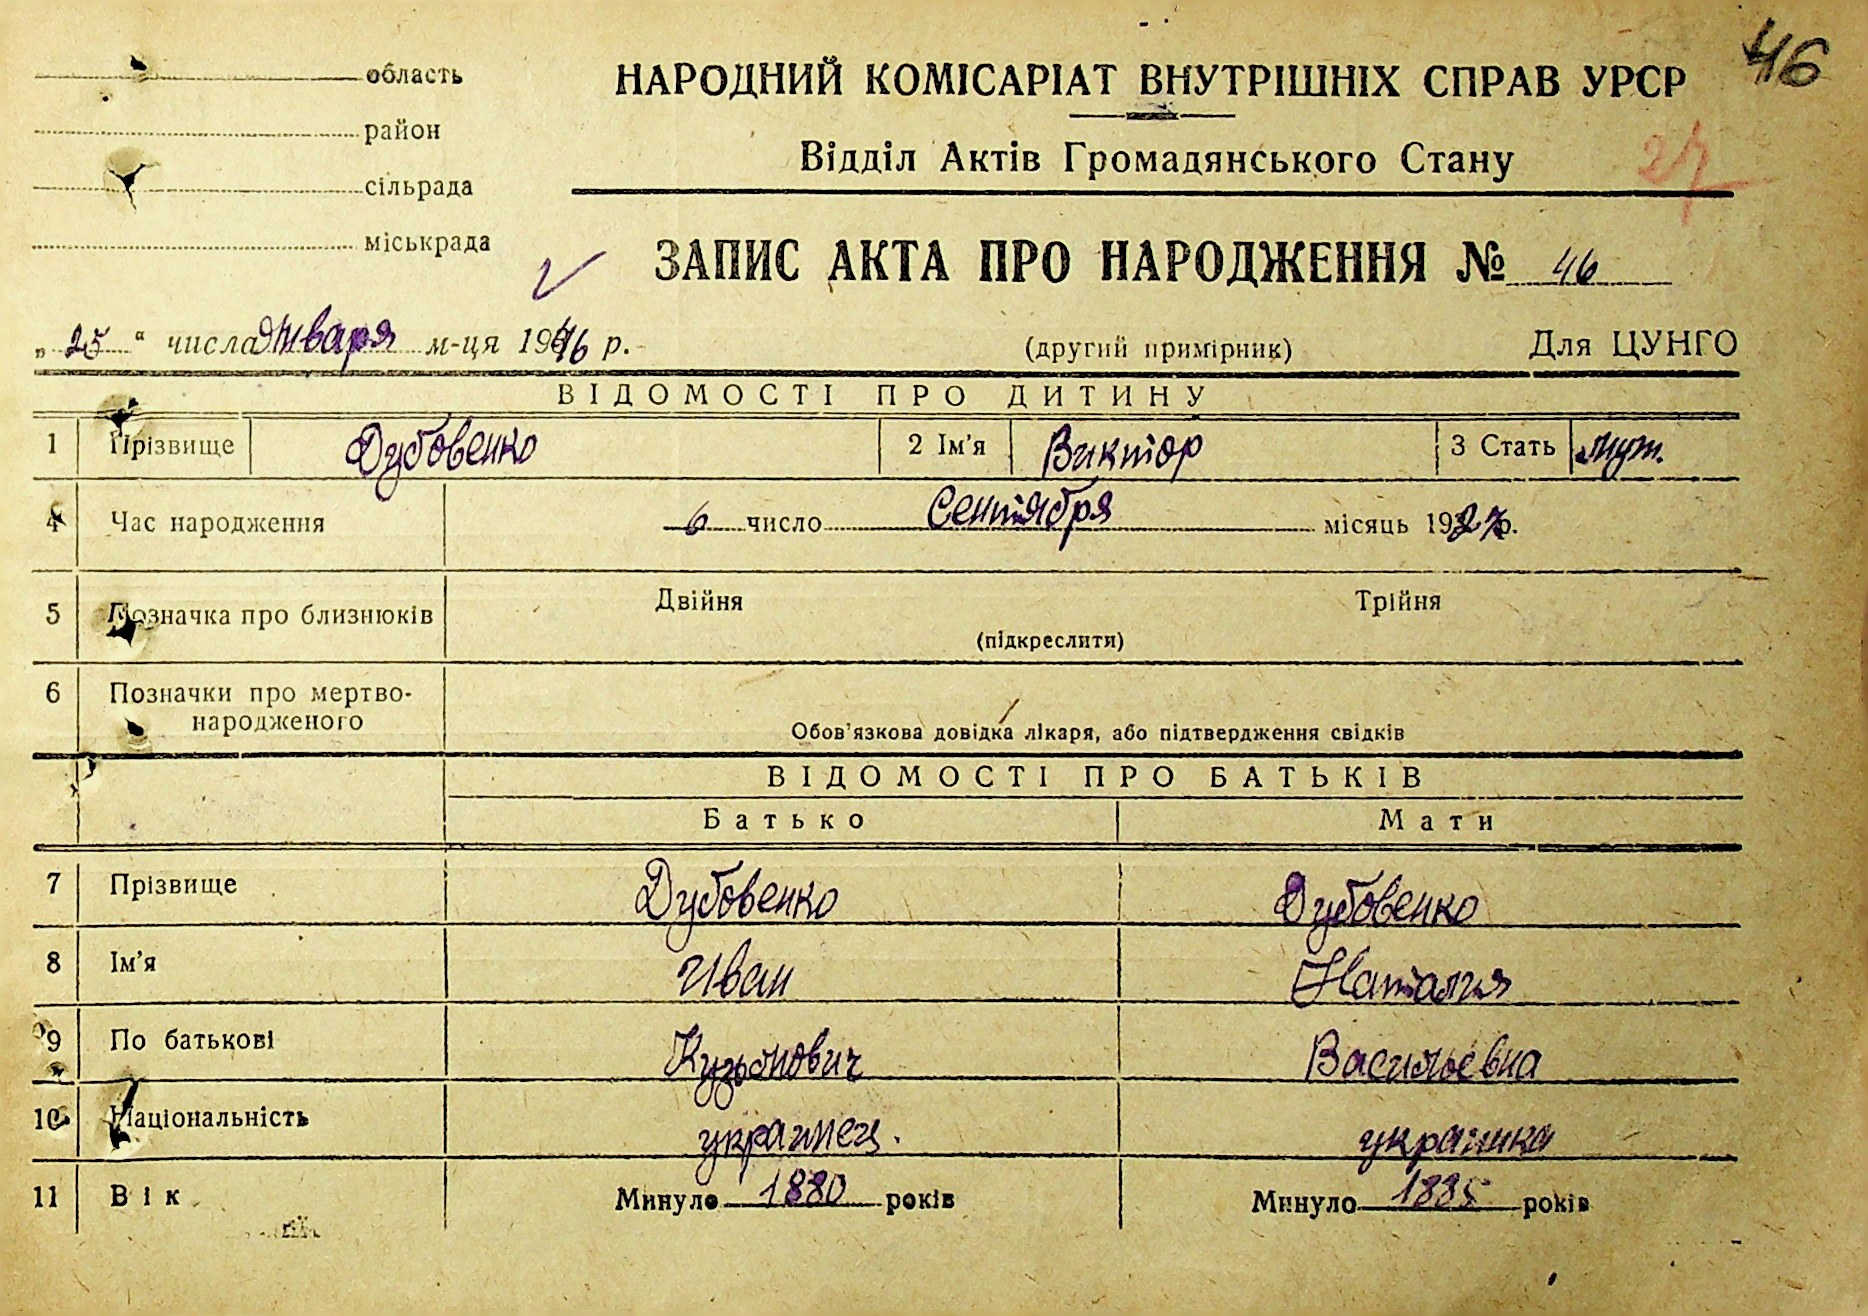 46
область
НАРОДНИЙ КОМІСАРІАТ ВНУТРІШНІХ СПРАВ УРСР
район
Відділ Актів Громадянського Стану
сільрада
міськрада
ЗАПИС АКТА ПРО НАРОДЖЕННЯ № 46
„25“ числа января м-ця 1946 р.
(другий примірник)
Для ЦУНГО
ВІДОМОСТІ ПРО ДИТИНУ
1 Прізвище Дубовенко 2 Ім'я Виктор 3 Стать муж.
4 Час народження 6 число Сентября місяць 1927 р.
5 Позначка про близнюків Двійня Трійня
(підкреслити)
6 Позначки про мертво-
народженого
Обов'язкова довідка лікаря, або підтвердження свідків
ВІДОМОСТІ ПРО БАТЬКІВ
Батько Мати
7 Прізвище Дубовенко Дубовенко
8 Ім'я Иван Наталия
9 По батькові Кузьмович Васильевна
10 Національність украинец. украинка
11 Вік Минуло 1880 років Минуло 1885 років